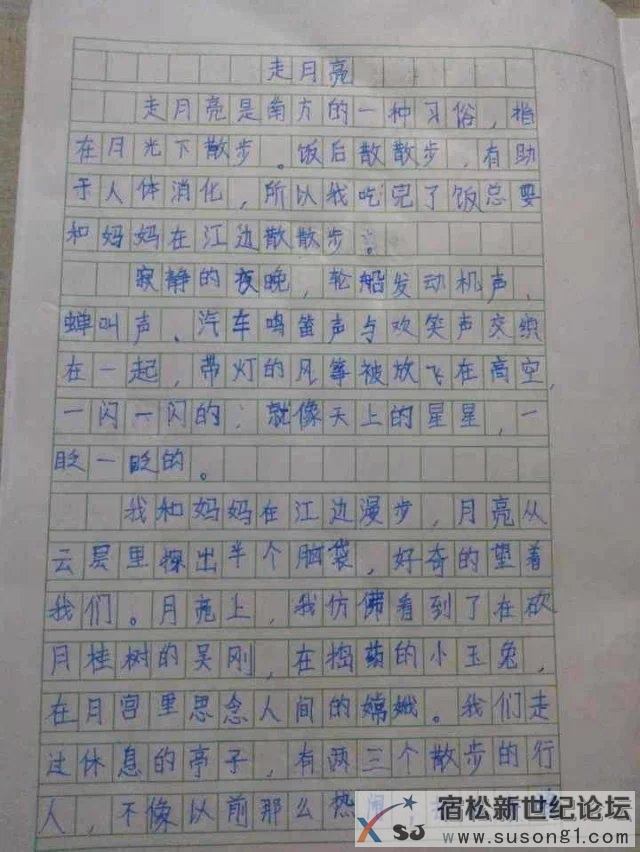 走月亮
走月亮是南方的一种习俗，指
在月光下散步。饭后散散步，有助
于人体消化，所以我吃完了饭总要
和妈妈在江边散散步。
寂静的夜晚，轮船发动机声，
蝉叫声、汽车鸣笛声与欢笑声交织
在一起，带灯的风筝被放飞在高空，
一闪一闪的；就像天上的星星，一
眨一眨的。
我和妈妈在江边漫步，月亮从
云层里探出半个脑袋，好奇的望着
我们。月亮上，我仿佛看到了在砍
月桂树的吴刚，在捣药的小玉兔，
在月宫里思念人间的嫦娥。我们走
过休息的亭子，有两三个散步的行
人，不像以前那么热闹，
宿松新世纪论坛
XSJ www.susong1.com